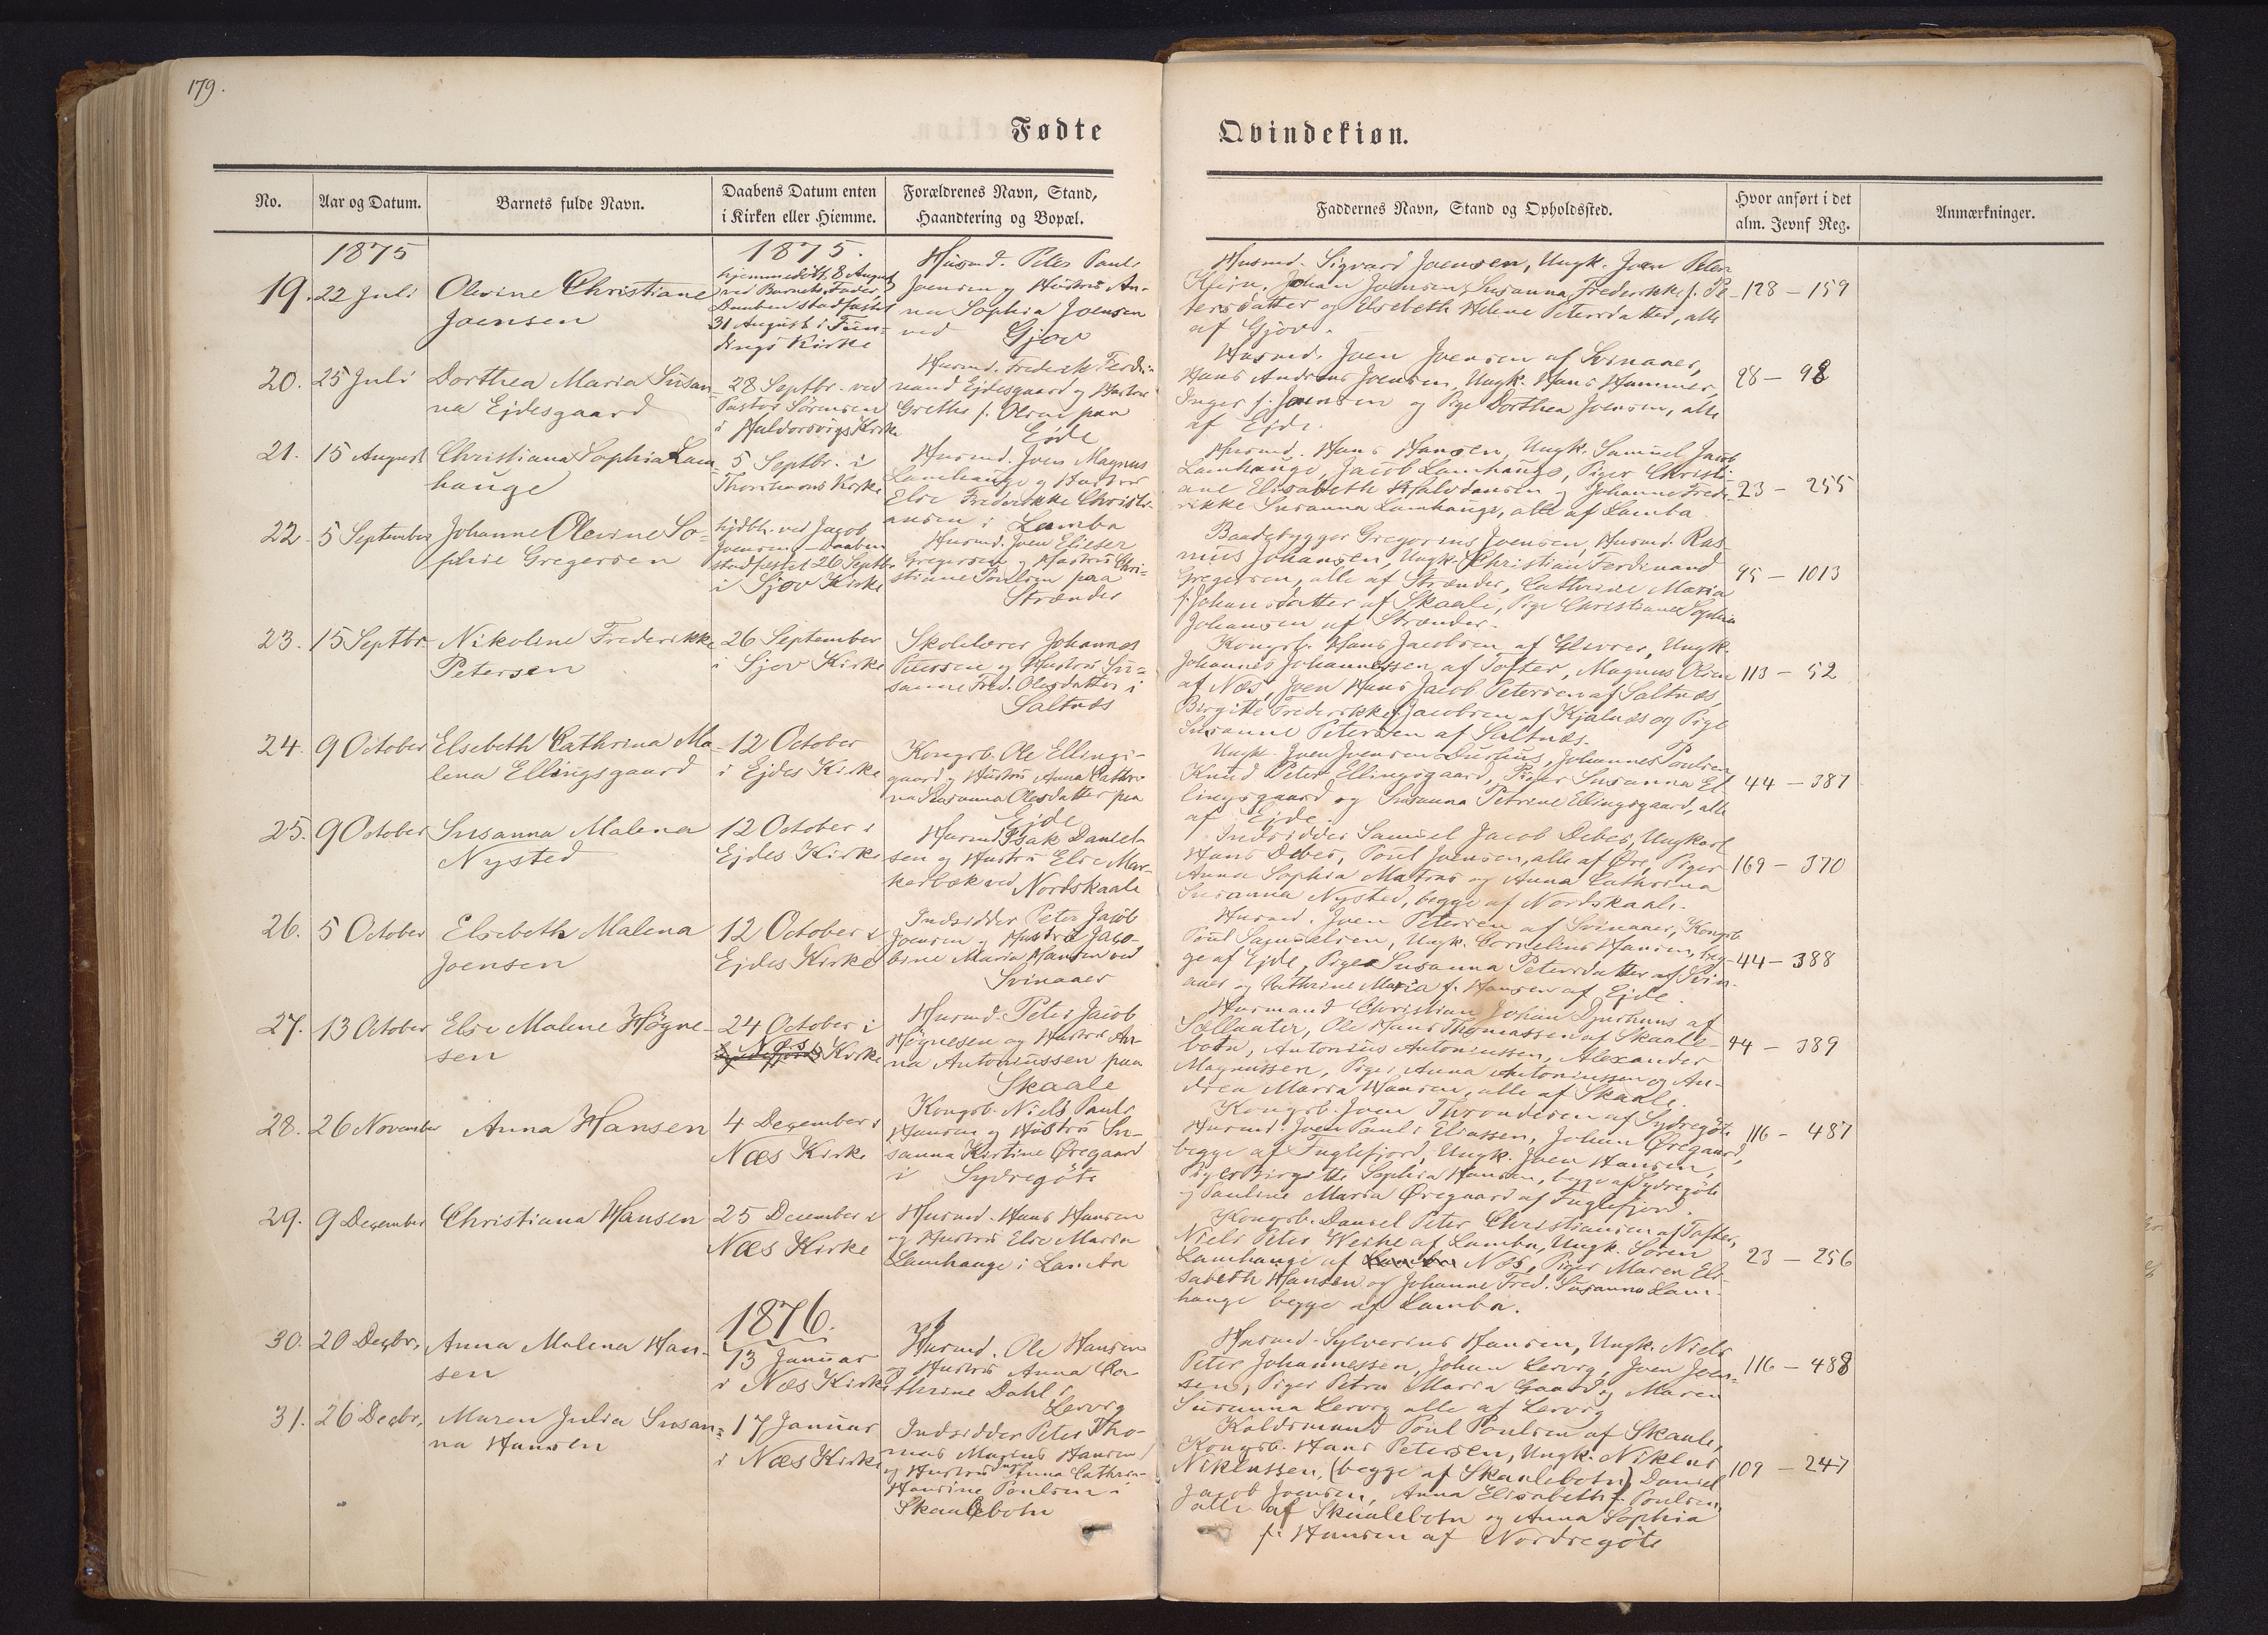 179.
Fødte
Qvindekiøn.
No.
Aar og Datum.
Barnets fulde Navn.
Daabens Datum enten
i Kirken eller Hiemme.
Forældrenes Navn, Stand,
Haandtering og Bopæl.
Faddernes Navn, Stand og Opholdssted.
Hvor anført i det
alm. Jevnf Reg.
Anmærkninger.
1875
1875.
19.
22 Juli
Olevine Christiane
Joensen
hjemmedøbt 8 August
ved Barnets Fader,
Daaben stadfæstet
31 August i Fun-
dings Kirke
Husmd. Peter Pauli
Joensen og Hustru An-
na Sophia Joensen
ved Gjov
Husmd. Sigvard Joensen, Ungk. Joen Peter
Johan Joensen, Susanna Frederikke f. Pe-
tersdatter og Elsebeth Helene Petersdatter, alle
af Gjov.
128 - 159
20.
25 Juli
Dorthea Maria Susan-
na Ejdesgaard
28 Septbr. ved
Pastor Sørensen
i Haldorsvigs Kirke
Husmd. Frederik Ferdi-
nand Ejdesgaard og Hustru
Grethe f. Olsen paa
Ejde
Husmd. Joen Joensen af Svinaaer,
Hans Andreas Joensen, Ungk. Hans Hammer,
Inger f. Joensen og Pige Dorthea Joensen, alle
af Ejde.
98
21.
15 August
Christiana Sophia Lam-
hauge
5 Septbr. i
Thorshavns Kirke
Husmd. Joen Magnus
Lamhauge og Hustru
Else Frederikke Christi-
ansen i Lamba
Husmd. Hans Hansen, Ungk. Samuel Jacob
Lamhauge, Jacob Lamhauge, Piger Christi-
ane Elisabeth Halvdansen og Johanne Frede-
rikke Susanna Lamhauge, alle af Lamba
23 - 255
22.
5 September
Johanne Olevine So-
phie Gregersen
hjdbt. ved Jacob
Joensen - Daaben
stadfæstet 26 Septbr.
i Sjov Kirke
Husmd. Joen Elieser
Gregersen og Hustru Chri-
stiane Poulsen paa
Strænder
Baadebygger Gregorius Joensen, Husmd. Ras-
mus Johansen, Ungk. Christian Ferdinand
Gregersen, alle af Strænder, Cathrine Maria
f. Johansdatter af Skaale, Pige Christiane Sophia
Johansen af Strænder.
95 - 1013
23.
15 Septbr.
Nikoline Frederikke
Petersen
26 September
i Sjov Kirke
Skolelærer Johannes
Petersen og Hustru Su-
sanne Fred. Olesdatter i
Saltnæs
Kongsb. Hans Jacobsen af Glivrer, Ungk.
Johannes Johannessen af Tofter, Magnus Olsen
af Næs, Joen Hans Jacob Petersen af Saltnæs,
Birgitte Frederikke f. Jacobsen af Kjalnæs og Pige
Susanne Petersen af Saltnæs.
113 - 52
24.
9 October
Elsebeth Cathrina Ma-
lena Ellingsgaard
12 October
i Ejdes Kirke
Kongsb. Ole Ellings-
gaard og Hustru Anna Cathri-
na Susanna Olesdatter paa
Ejde
Ungk. Joen Joensen Durhuus, Johannes Poulsen
Knud Peter Ellingsgaard, Piger Susanna El-
lingsgaard og Susanna Petrine Ellingsgaard, alle
af Ejde.
44 - 387
25.
9 October
Susanna Malena
Nysted
12 October i
Ejdes Kirke
Husmd. Isak Daniel-
sen og Hustru Else Mar-
kerbæk ved Nordskaale
Indsidder Samuel Jacob Debes, Ungkarl
Hans Debes, Poul Joensen, alle af Øre, Piger
Anna Sophia Matras og Anna Cathrina
Susanna Nysted, begge af Nordskaale.
169 - 370
26.
5 October
Elsebeth Malena
Joensen
12 October i
Ejdes Kirke
Indsidder Peter Jacob
Joensen og Hustru Jaco-
bine Maria Hansen ved
Svinaaer
Husmd. Joen Petersen af Svinaaer, Kongsb
Poul Samuelsen, Ungk. Cornelius Hansen, beg-
ge af Ejde, Piger Susanna Petersdatter af Svin-
aaer og Cathrine Maria f. Hansen af Ejde.
44 - 388
27.
13 October
Else Malene Høgne-
sen
24 October i
Næs
Kirke
Husmd. Peter Jacob
Høgnesen og Hustru An-
na Antoniussen paa
Skaale
Husmand Christian Johan Djurhuus af
Sællanter, Ole Hans Thomassen af Skaale-
botn, Antonius Antoniussen, Alexander
Magnussen, Piger Anna Antoniussen og An-
drea Maria Hansen, alle af Skaale.
44 - 389
28.
26 November
Anna Hansen
4 December i
Næs Kirke
Kongsb. Niels Pauli
Hansen og Hustru Su-
sanna Kirstine Øregaard
i Sydregöte
Kongsb. Joen Throndesen af Sydregöte
Husmd. Joen Pauli Eliassen, Johan Øregaard,
begge af Fuglefjord, Ungk. Joen Hansen,
Piger Birgitte Sophia Hansen, begge af Sydregöte
og Pauline Maria Øregaard af Fuglefjord.
116 - 487
29.
9 December
Christiana Hansen
25 December i
Næs Kirke
Husmd. Hans Hansen
og Hustru Else Maria
Lamhauge i Lamba
Kongsb. Daniel Peter Christiansen af Tofter,
Niels Peter Weihe af Lamba, Ungk. Søren
Lamhauge af Lamba Næs, Piger Maren Eli-
sabeth Hansen og Johanne Fred. Susanna Lam-
hauge begge af Lamba.
23 - 256
1876.
30.
20 Decbr.
Anna Malena Han-
sen
13 Januar
i Næs Kirke
Husmd. Ole Hansen
og Hustru Anna Ca-
thrine Dahl i
Lervig
Husmd. Sylverius Hansen, Ungk. Niels
Peter Johannessen, Johan Lervig, Joen Joen-
sen, Piger Petra Maria Gaard og Maren
Susanna Lervig alle af Lervig
116 - 488
31.
26 Decbr.
Maren Julia Susan-
na Hansen
17 Januar
i Næs Kirke
Indsidder Peter Tho-
mas Marius Hansen
og Hustru Anna Cathrin-
Hansine Poulsen i
Skaalebotn
Koldsmand Poul Poulsen af Skaale,
Kongsb. Hans Petersen, Ungk. Niklas
Niklassen, (begge af Skaalebotn), Daniel
Jacob Joensen, Anna Elisabeth f. Poulsen,
alle af Skaalebotn og Anna Sophia
f. Hansen af Nordregöte
109 - 247